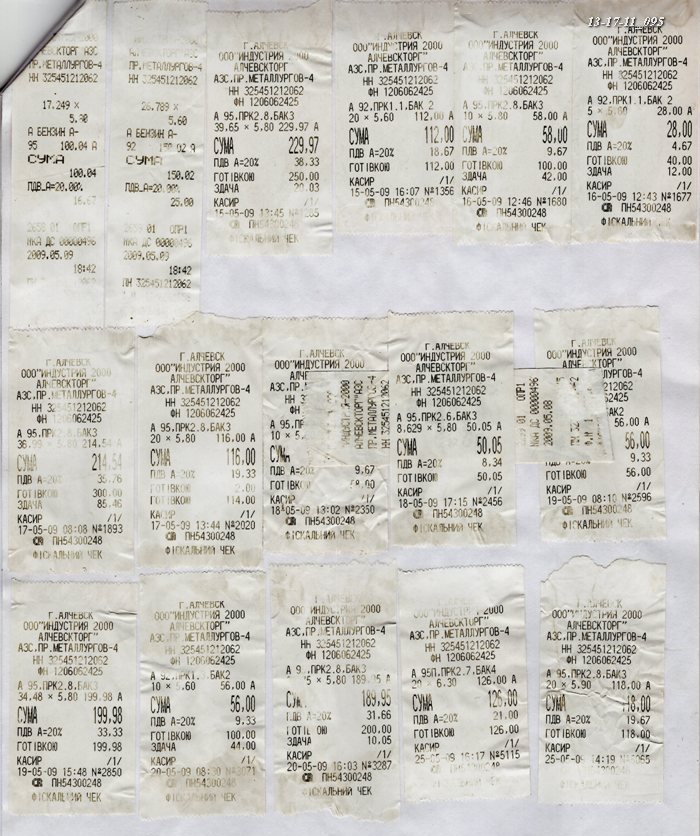 13-17-11_095
ЕВСКТОРГ АЗС
ПР.МЕТАЛЛУРГОВ-
НН 325451212062
17.249 X
5.80
А БЕНЗИН А-
95 100.04 А
СУМА
100.04
ПДВ_А=20.00%
16.67
2658 01 ОПР1
МКА ДС 00000496
2009.05.09
18:42
АЛЧЕВСКТОРГ АЗС
ПР.МЕТАЛЛУРГОВ-
НН 325451212062
26.789 X
5.60
А БЕНЗИН А-
92 150.02 А
СУМА
150.02
ПДВ_А=20.00%
25.00
01 ОПР1
МКА ДС 00000496
2009.05.09
18:42
ПН 325451212062
Г.АЛЧЕВСК
ООО"ИНДУСТРИЯ 2000
АЛЧЕВСКТОРГ"
АЗС.ПР.МЕТАЛЛУРГОВ-4
НН 325451212062
ФН 1206062425
А 95.ПРК2.8.БАК3
39.65 x 5.80 229.97 А
СУМА 229.97
ПДВ А=20% 38.33
ГОТІВКОЮ 250.00
ЗДАЧА 20.03
КАСИР /1/
15-05-09 12:45
ПН54300248
ФІСКАЛЬНИЙ ЧЕК
Г.АЛЧЕВСК
ООО"ИНДУСТРИЯ 2000
АЛЧЕВСКТОРГ"
АЗС.ПР.МЕТАЛЛУРГОВ-4
НН 325451212062
ФН 1206062425
А 92.ПРК1.1.БАК 2
20 x 5.60 112.00 А
СУМА 112.00
ПДВ А=20% 18.67
ГОТІВКОЮ 112.00
КАСИР /1/
15-05-09 16:07 №1356
ПН54300248
ФІСКАЛЬНИЙ ЧЕК
Г.АЛЧЕВСК
ООО"ИНДУСТРИЯ 2000
АЛЧЕВСКТОРГ"
АЗС.ПР.МЕТАЛЛУРГОВ-4
НН 325451212062
ФН 1206062425
А 95.ПРК2.8.БАК3
10 x 5.80 58.00 А
СУМА 58.00
ПДВ А=20% 9.67
ГОТІВКОЮ 100.00
ЗДАЧА 42.00
КАСИР /1/
16-05-09 12:46 №1680
ПН54300248
ФІСКАЛЬНИЙ ЧЕК
Г.АЛЧЕВСК
ООО"ИНДУСТРИЯ 2000
АЛЧЕВСКТОРГ"
АЗС.ПР.МЕТАЛЛУРГОВ-4
НН 325451212062
ФН 1206062425
А 92.ПРК1.1.БАК 2
5 x 5.60 28.00 А
СУМА 28.00
ПДВ А=20% 4.67
ГОТІВКОЮ 40.00
ЗДАЧА 12.00
КАСИР /1/
16-05-09 12:43 №1677
ПН54300248
ФІСКАЛЬНИЙ ЧЕК
Г.АЛЧЕВСК
ООО"ИНДУСТРИЯ 2000
АЛЧЕВСКТОРГ"
АЗС.ПР.МЕТАЛЛУРГОВ-4
НН 325451212062
ФН 1206062425
А 95.ПРК2.8.БАК3
36.99 x 5.80 214.54 А
СУМА 214.54
ПДВ А=20% 35.76
ГОТІВКОЮ 300.00
ЗДАЧА 85.46
КАСИР /1/
17-05-09 08:08 №1893
ПН54300248
ФІСКАЛЬНИЙ ЧЕК
Г.АЛЧЕВСК
ООО"ИНДУСТРИЯ 2000
АЛЧЕВСКТОРГ"
АЗС.ПР.МЕТАЛЛУРГОВ-4
НН 325451212062
ФН 1206062425
А 95.ПРК2.8.БАК3
20 x 5.80 116.00 А
СУМА 116.00
ПДВ А=20% 19.33
ГОТІВКОЮ 2.00
ГОТІВКОЮ 114.00
КАСИР /1/
17-05-09 13:44 №2020
ПН54300248
ФІСКАЛЬНИЙ ЧЕК
Г.АЛЧЕВСК
ООО"ИНДУСТРИЯ 2000
АЗС.ПР.
НН 3254
ФН
А 95.ПРК2.
10 x 5.
СУМА
ПДВ А=20% 9.67
ГОТІВКОЮ 58.00
КАСИР /1/
18-05-09 13:02 №2350
ПН54300248
ФІСКАЛЬНИЙ ЧЕК
АЛЧЕВСКТОРГ АЗС
ПР.МЕТАЛЛУРГОВ-4
НН 325451212062
Г.АЛЧЕВСК
ООО"ИНДУСТРИЯ 2000
АЛЧЕВСКТОРГ"
АЗС.ПР.МЕТАЛЛУРГОВ-4
НН 325451212062
ФН 1206062425
А 95.ПРК2.6.БАК3
8.629 x 5.80 50.05 А
СУМА 50.05
ПДВ А=20% 8.34
ГОТІВКОЮ 50.05
КАСИР /1/
18-05-09 17:15 №2456
ПН54300248
ФІСКАЛЬНИЙ ЧЕК
01 ОПР1
МКА ДС 00000496
2009.05.08
Г.АЛЧЕВСК
ООО"ИНДУСТРИЯ 2000
ЛУРГОВ-4
212062
62425
АК2
56.00 А
56.00
А=20% 9.33
ГОТІВКОЮ 56.00
КАСИР /1/
19-05-09 08:10 №2596
ПН54300248
ФІСКАЛЬНИЙ ЧЕК
Г.АЛЧЕВСК
ООО"ИНДУСТРИЯ 2000
АЛЧЕВСКТОРГ"
АЗС.ПР.МЕТАЛЛУРГОВ-4
НН 325451212062
ФН 1206062425
А 95.ПРК2.8.БАК3
34.48 x 5.80 199.98 А
СУМА 199.98
ПДВ А=20% 33.33
ГОТІВКОЮ 199.98
КАСИР /1/
19-05-09 15:48 №2850
ПН54300248
ФІСКАЛЬНИЙ ЧЕК
Г.АЛЧЕВСК
ООО"ИНДУСТРИЯ 2000
АЛЧЕВСКТОРГ"
АЗС.ПР.МЕТАЛЛУРГОВ-4
НН 325451212062
ФН 1206062425
БАК 2
10 x 5.60 56.00 А
СУМА 56.00
ПДВ А=20% 9.33
ГОТІВКОЮ 100.00
ЗДАЧА 44.00
КАСИР /1/
20-05-09 08:30
ПН54300248
ФІСКАЛЬНИЙ ЧЕК
Г.АЛЧЕВСК
ООО"ИНДУСТРИЯ 2000
АЛЧЕВСКТОРГ"
АЗС.ПР.МЕТАЛЛУРГОВ-4
НН 325451212062
ФН 1206062425
ПРК2.8.БАК3
5.80 189.95 А
СУМА 189.95
ПДВ А=20% 31.66
ГОТІВКОЮ 200.00
ЗДАЧА 10.05
КАСИР /1/
20-05-09 16:03 №3287
ПН54300248
ФІСКАЛЬНИЙ ЧЕК
Г.АЛЧЕВСК
2000
АЛЧЕВСКТОРГ"
АЗС.ПР.МЕТАЛЛУРГОВ-4
НН 325451212062
ФН 1206062425
А 95П.ПРК2.7.БАК4
20 x 6.30 126.00 А
СУМА 126.00
ПДВ А=20% 21.00
ГОТІВКОЮ 126.00
КАСИР /1/
25-05-09 16:17 №5115
ПН54300248
ФІСКАЛЬНИЙ ЧЕК
Г.АЛЧЕВСК
2000
АЛЧЕВСКТОРГ"
АЗС.ПР.МЕТАЛЛУРГОВ-4
НН 325451212062
ФН 1206062425
А 95.ПРК2.8.БАК3
20 x 5.90 118.00 А
СУМА 118.00
ПДВ А=20% 19.67
ГОТІВКОЮ 118.00
КАСИР /1/
25-05-09 14:19
ФІСКАЛЬНИЙ ЧЕК